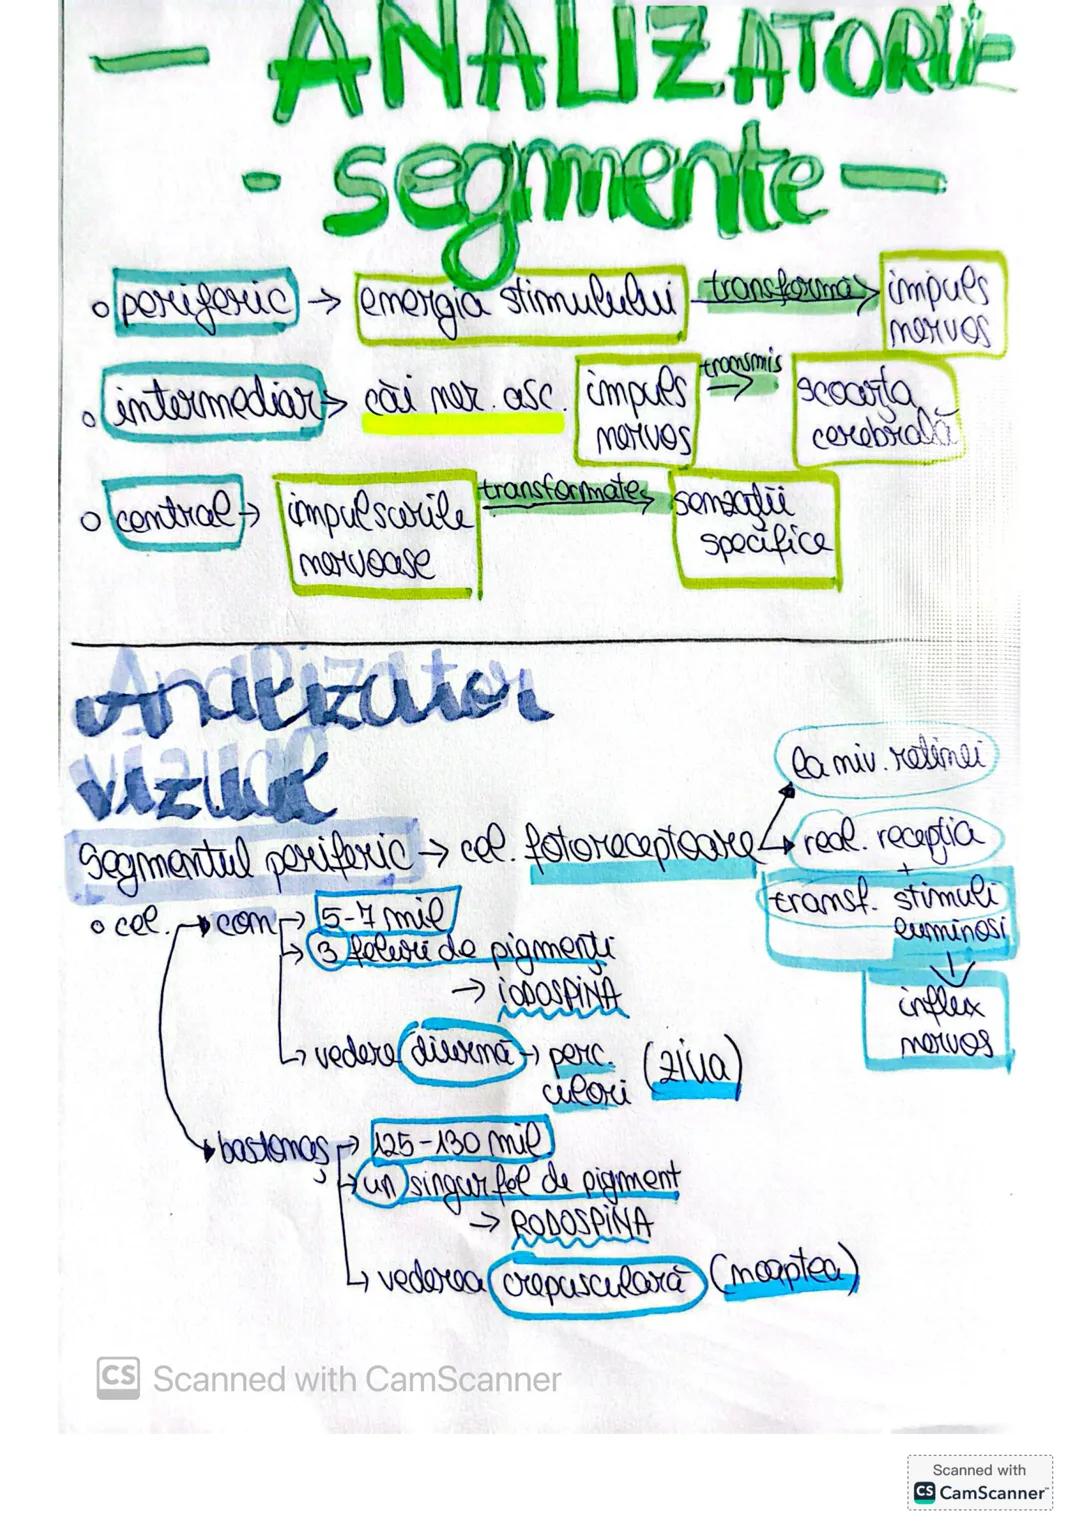 — ANALIZATORII —
- segmente —
o periferic → energia stimulului transformă → impuls nervos
o intermediar → căi ner. asc. impuls nervos transmis → scoarța cerebrală
o central → impulsurile nervoase transformate → senzații specifice
Analizator
vizual
la niv. retinei
Segmentul periferic → cel. fotoreceptoare → real. recepția
+
transf. stimuli
luminosi
↓
influx
nervos
o cel. → con → 5-7 mil
→ 3 feluri de pigmenți
→ IODOSPINA
↳ vedere diurnă → perc. culori (ziua)
→ bastonaș → 125-130 mil
→ un singur fel de pigment
→ RODOSPINA
↳ vederea crepusculară (noaptea)
CS Scanned with CamScanner
Scanned with
CS CamScanner